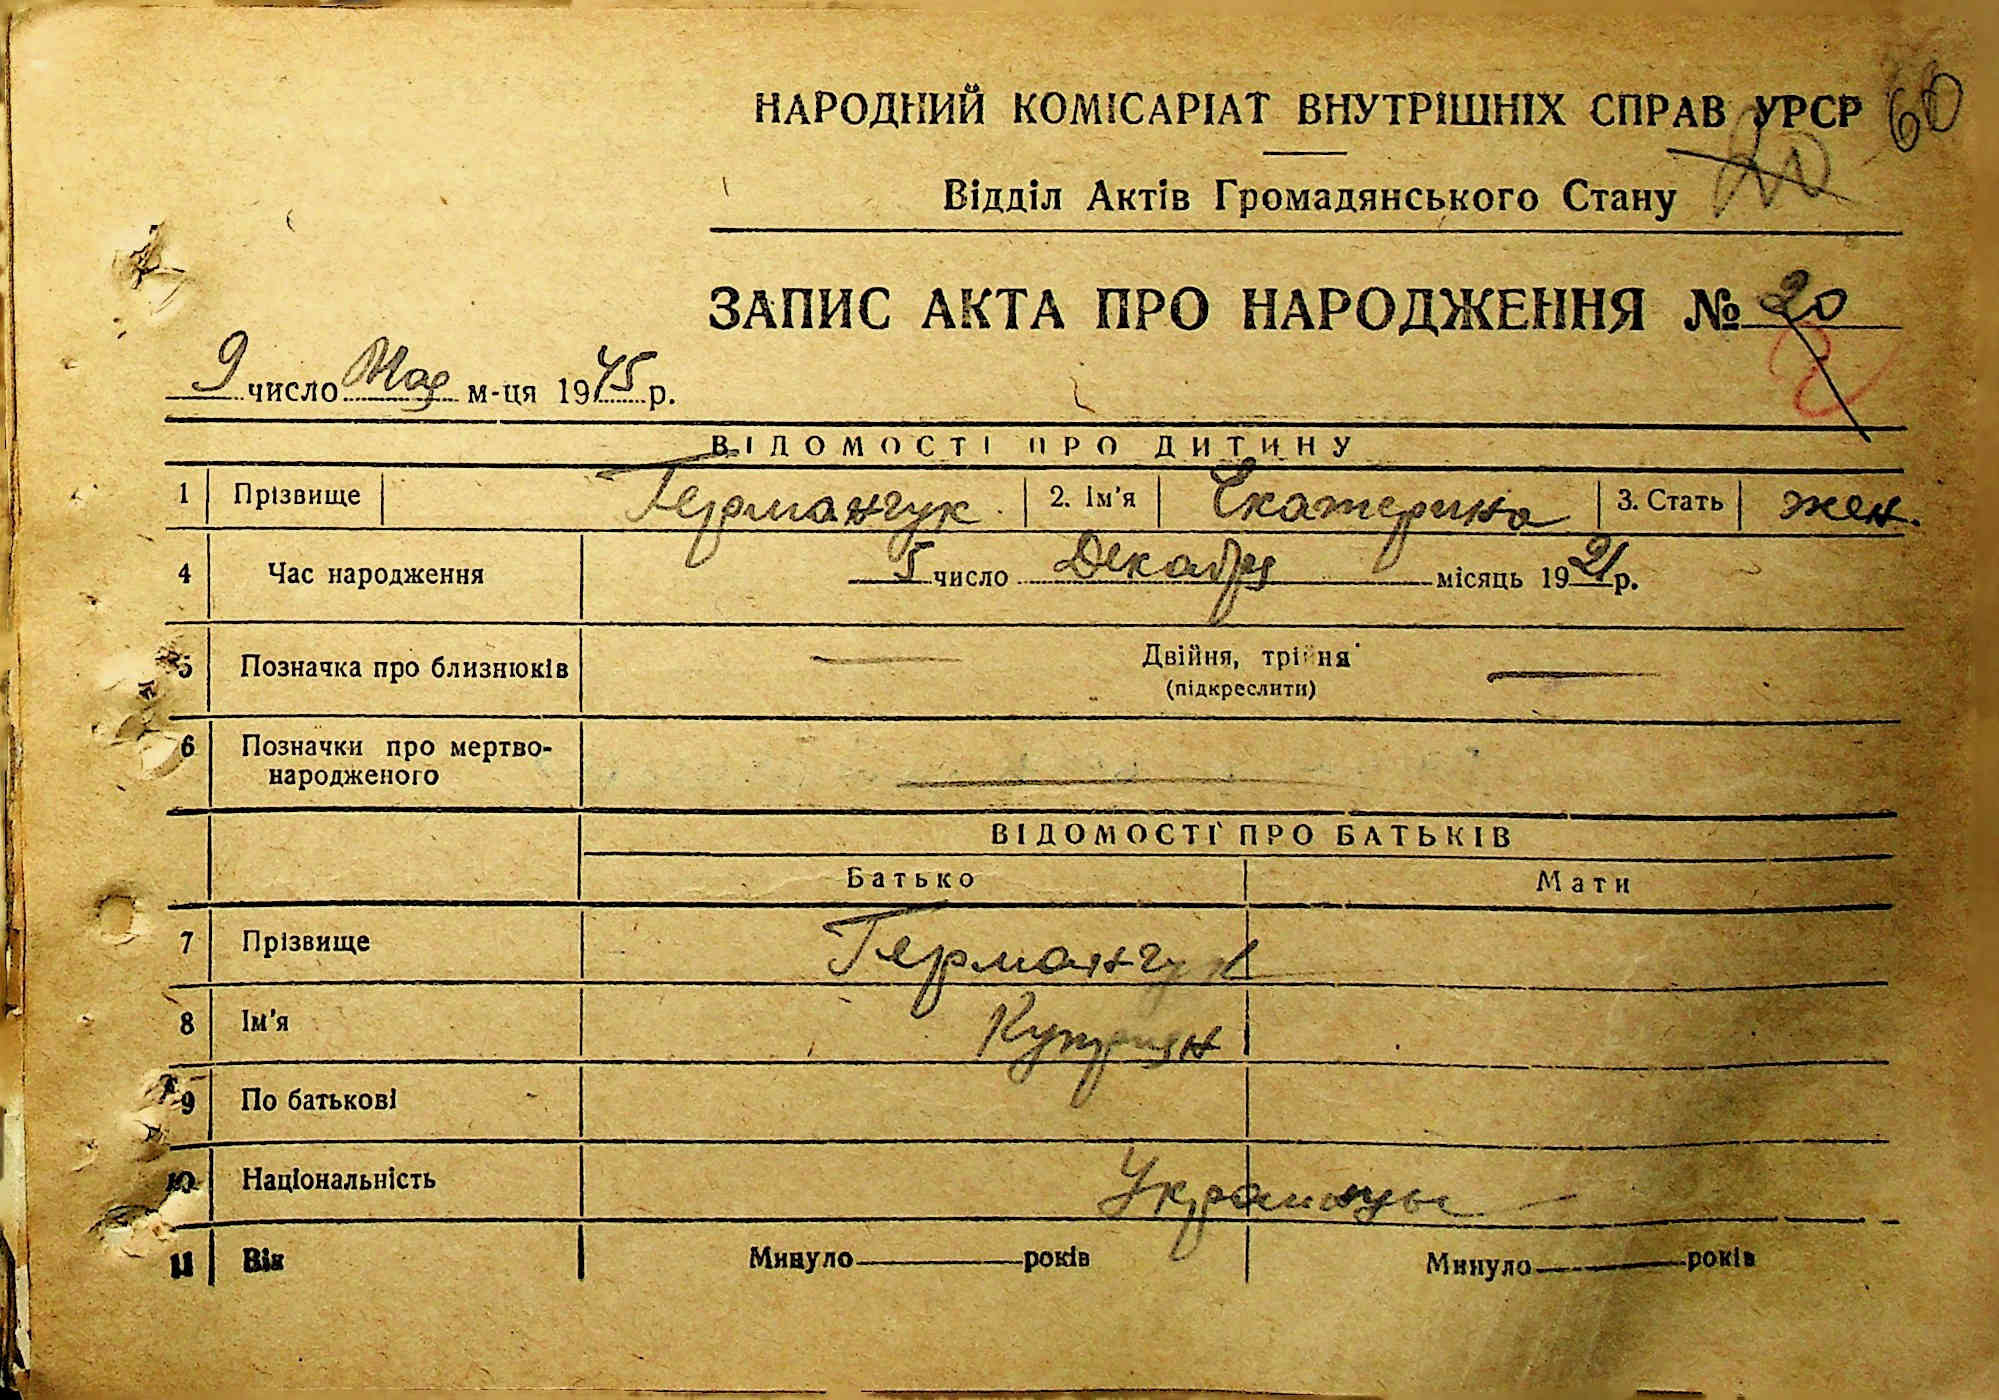 НАРОДНИЙ КОМІСАРІАТ ВНУТРІШНІХ СПРАВ УРСР 60
20
Відділ Актів Громадянського Стану
ЗАПИС АКТА ПРО НАРОДЖЕННЯ № 20
2
9 число Мая м-ця 1945 р.
ВІДОМОСТІ ПРО ДИТИНУ
1 Прізвище Германчук 2. Ім'я Екатерина 3. Стать жен.
4 Час народження 5 число Декабря місяць 1921 р.
5 Позначка про близнюків Двійня, трійня
(підкреслити)
6 Позначки про мертво-
народженого
ВІДОМОСТІ ПРО БАТЬКІВ
Батько Мати
7 Прізвище Германчук
8 Ім'я Куприян
9 По батькові
10 Національність Украинцы
11 Вік Минуло років Минуло років